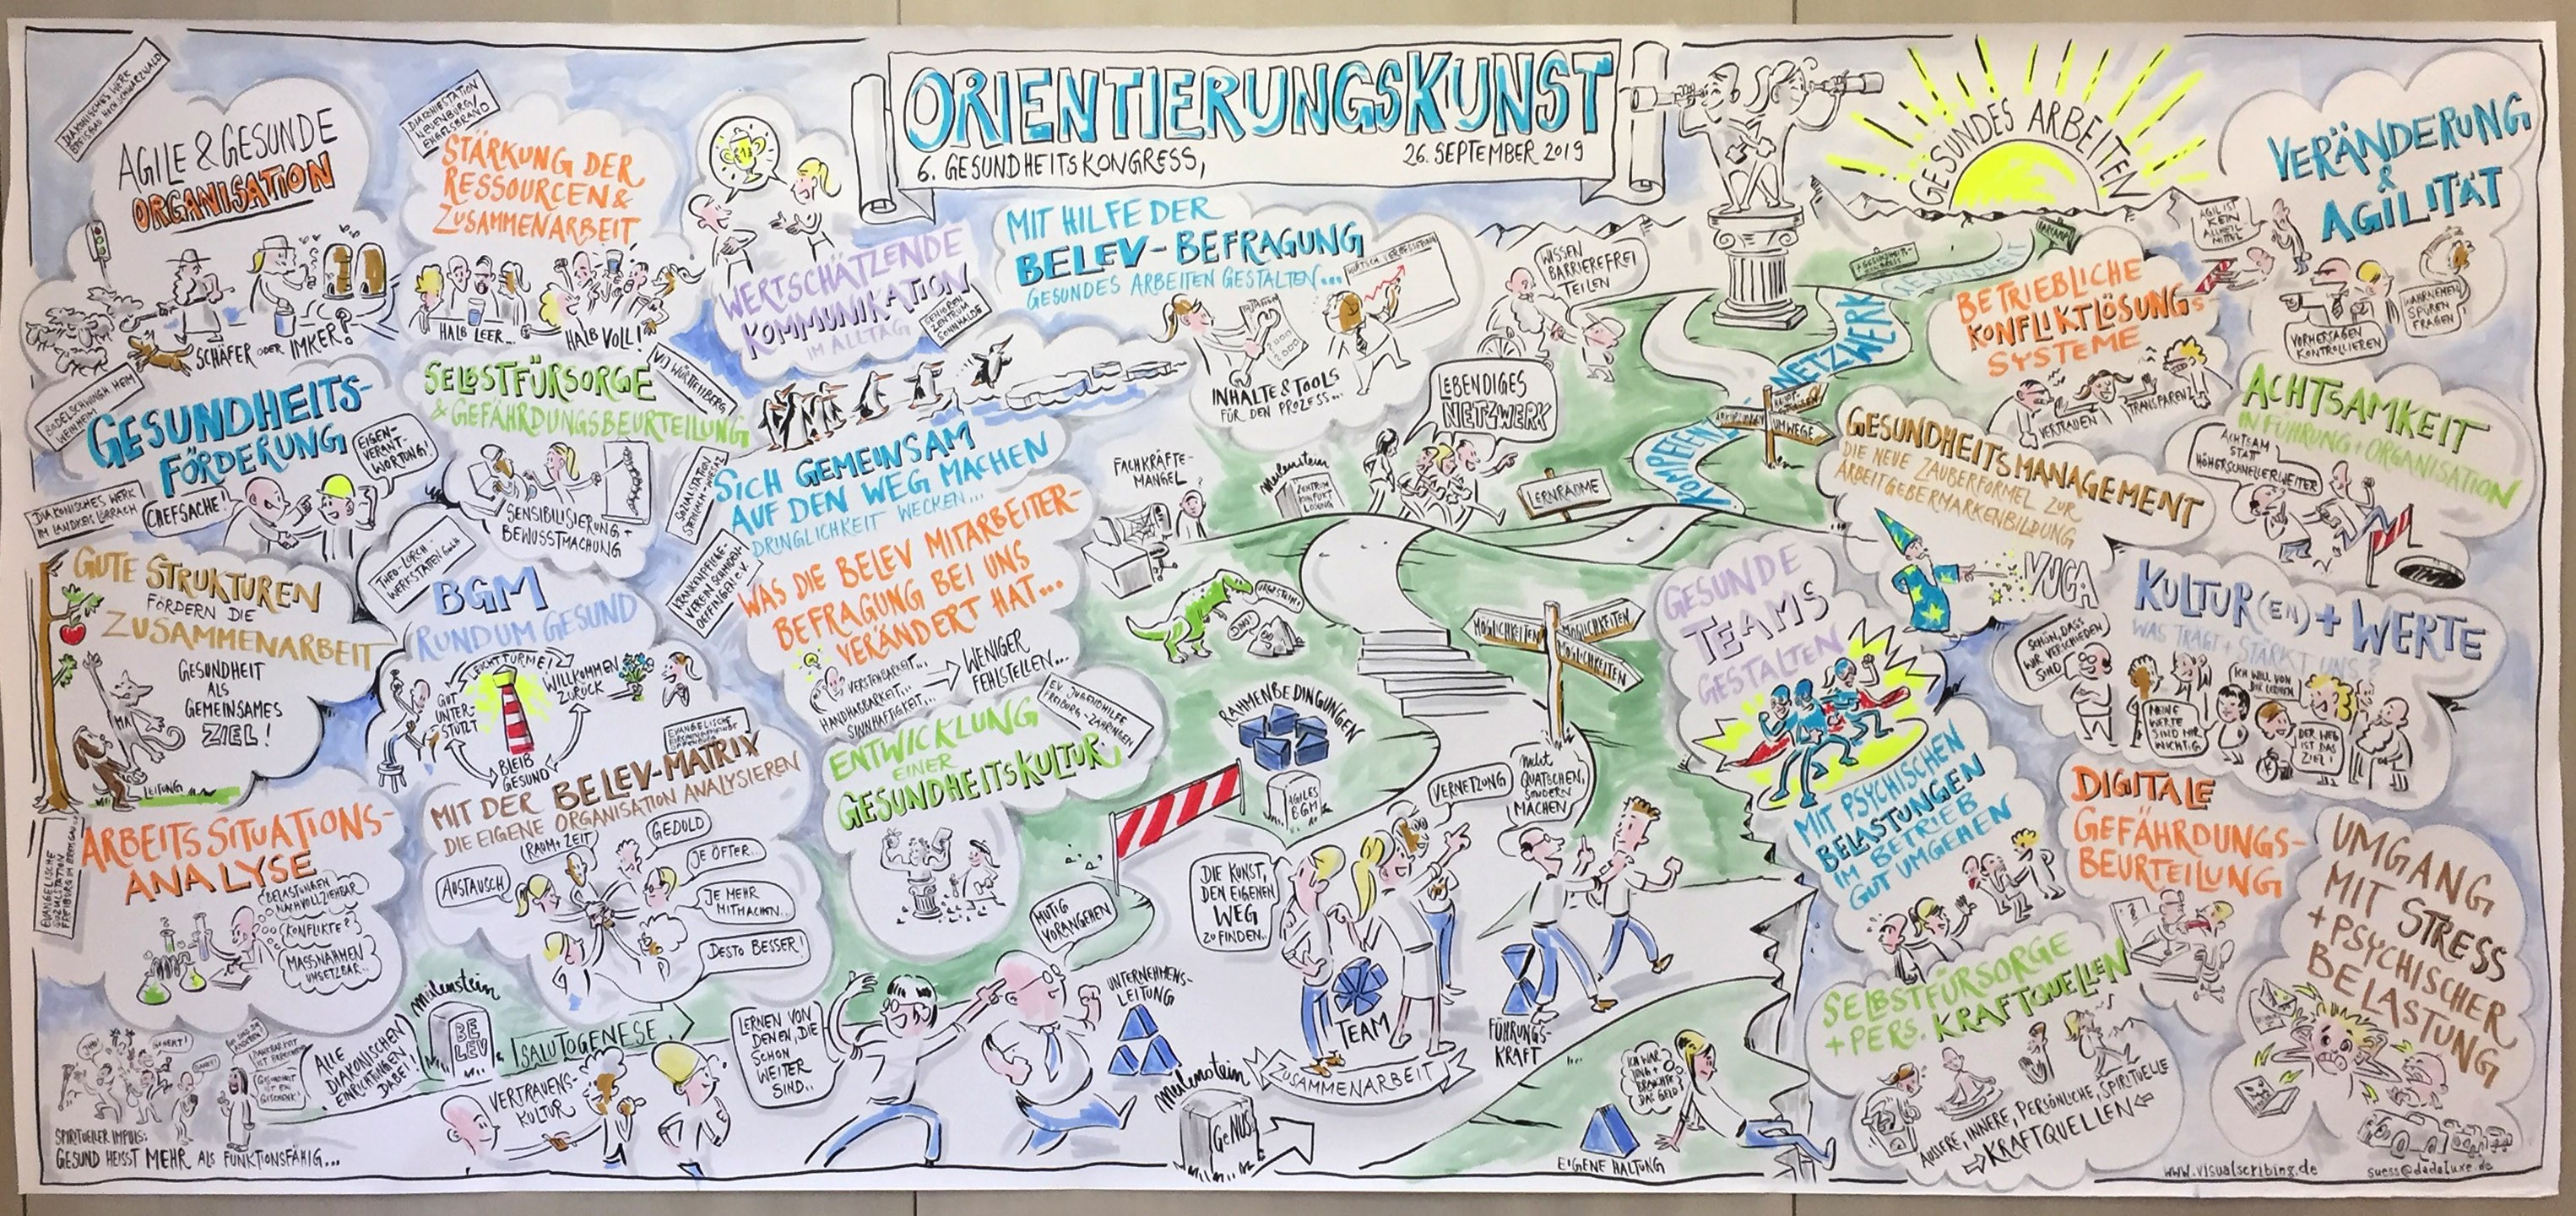 ORIENTIERUNGSKUNST
6. GESUNDHEITSKONGRESS,
26. SEPTEMBER 2019
DIAKONISCHES WERK
BREISGAU HOCHSCHWARZWALD
AGILE & GESUNDE
ORGANISATION
SCHÄFER ODER IMKER?
DIAKONIESTATION
NEUENBÜRG
ENGELSBRAND
STÄRKUNG DER
RESSOURCEN &
ZUSAMMENARBEIT
HALB LEER...
HALB VOLL!
WERTSCHÄTZENDE
KOMMUNIKATION
IM ALLTAG
SENIOREN
ZENTRUM
SONNHALDE
MIT HILFE DER
BELEV-BEFRAGUNG
GESUNDES ARBEITEN GESTALTEN...
INHALTE & TOOLS
FÜR DEN PROZESS...
WISSEN
BARRIEREFREI
TEILEN
GESUNDES ARBEITEN
VERÄNDERUNG
&
AGILITÄT
AGIL IST
KEIN
ALLHEIL
MITTEL
VORHERSAGEN
KONTROLLIEREN
WAHRNEHMEN
SPÜREN
FRAGEN
BODELSCHWINGH HEIM
WEINHEIM
GESUNDHEITS-
FÖRDERUNG
CHEFSACHE!
EIGEN-
VERANT-
WORTUNG!
SELBSTFÜRSORGE
& GEFÄHRDUNGSBEURTEILUNG
VDJ WÜRTTEMBERG
SENSIBILISIERUNG +
BEWUSSTMACHUNG
SICH GEMEINSAM
AUF DEN WEG MACHEN
DRINGLICHKEIT WECKEN...
FACHKRÄFTE-
MANGEL
LEBENDIGES
NETZWERK
Meilenstein
ZENTRUM
KONFLIKT
LÖSUNG
LERNRÄUME
KOMPETENZ
NETZWERK
GESUNDHEIT
UMWEGE
BETRIEBLICHE
KONFLIKTLÖSUNGS-
SYSTEME
VERTRAUEN
TRANSPARENZ
GESUNDHEITSMANAGEMENT
DIE NEUE ZAUBERFORMEL ZUR
ARBEITGEBERMARKENBILDUNG
VUCA
ACHTSAMKEIT
IN FÜHRUNG + ORGANISATION
ACHTSAM
STATT
HÖHERSCHNELLERWEITER
DIAKONISCHES WERK
IM LANDKREIS LÖRRACH
GUTE STRUKTUREN
FÖRDERN DIE
ZUSAMMENARBEIT
GESUNDHEIT
ALS
GEMEINSAMES
ZIEL!
MA
LEITUNG
THEO-LORCH-
WERKSTÄTTEN GmbH
BGM
RUNDUM GESUND
LEUCHTTÜRME!
WILLKOMMEN
ZURÜCK
GUT
UNTER-
STÜTZT
BLEIB
GESUND
KRANKENPFLEGE-
VEREIN SCHMIDEN-
OEFFINGEN e.V.
WAS DIE BELEV MITARBEITER-
BEFRAGUNG BEI UNS
VERÄNDERT HAT...
VERSTEHBARKEIT...
HANDHABBARKEIT...
SINNHAFTIGKEIT...
WENIGER
FEHLZEITEN...
MÖGLICHKEITEN
MÖGLICHKEITEN
MÖGLICHKEITEN
GESUNDE
TEAMS
GESTALTEN
KULTUR(EN) + WERTE
WAS TRÄGT + STÄRKT UNS?
SCHÖN, DASS
WIR VERSCHIEDEN
SIND
MEINE
WERTE
SIND MIR
WICHTIG
ICH WILL VON
DIR LERNEN
DER WEG
IST DAS
ZIEL!
EV. JUGENDHILFE
FREIBURG-ZÄHRINGEN
ENTWICKLUNG
EINER
GESUNDHEITSKULTUR
RAHMENBEDINGUNGEN
AGILES
BGM
VERNETZUNG
nicht
QUATSCHEN,
SONDERN
MACHEN
MIT DER BELEV-MATRIX
DIE EIGENE ORGANISATION ANALYSIEREN
RAUM + ZEIT
GEDULD
AUSTAUSCH
JE ÖFTER...
JE MEHR
MITMACHEN...
DESTO BESSER!
ARBEITSSITUATIONS-
ANALYSE
BELASTUNGEN
NACHVOLLZIEHBAR
KONFLIKTE?
MASSNAHMEN
UMSETZBAR..
MIT PSYCHISCHEN
BELASTUNGEN
IM BETRIEB
GUT UMGEHEN
DIGITALE
GEFÄHRDUNGS-
BEURTEILUNG
UMGANG
MIT STRESS
+ PSYCHISCHER
BELASTUNG
DIE KUNST,
DEN EIGENEN
WEG
ZU FINDEN..
MUTIG
VORANGEHEN
UNTERNEHMENS-
LEITUNG
TEAM
ZUSAMMENARBEIT
FÜHRUNGS-
KRAFT
SELBSTFÜRSORGE
+ PERS. KRAFTQUELLEN
ÄUSSERE, INNERE, PERSÖNLICHE, SPIRITUELLE
KRAFTQUELLEN
Meilenstein
BE
LEV
SALUTOGENESE
ALLE
DIAKONISCHEN
EINRICHTUNGEN
DABEI!
VERTRAUENS-
KULTUR
LERNEN VON
DENEN, DIE
SCHON
WEITER
SIND..
Meilenstein
GeNUSS
ICH WAR
JUNG +
BRAUCHTE
DAS GELD
EIGENE HALTUNG
SPIRITUELLER IMPULS:
GESUND HEISST MEHR ALS FUNKTIONSFÄHIG...
www.visualscribing.de
suess@dadaluxe.de